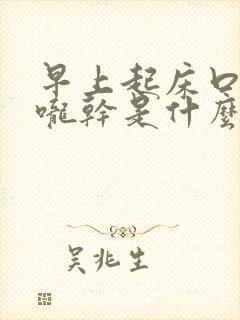 早上起床口
嚨幹是什麼
吴兆生